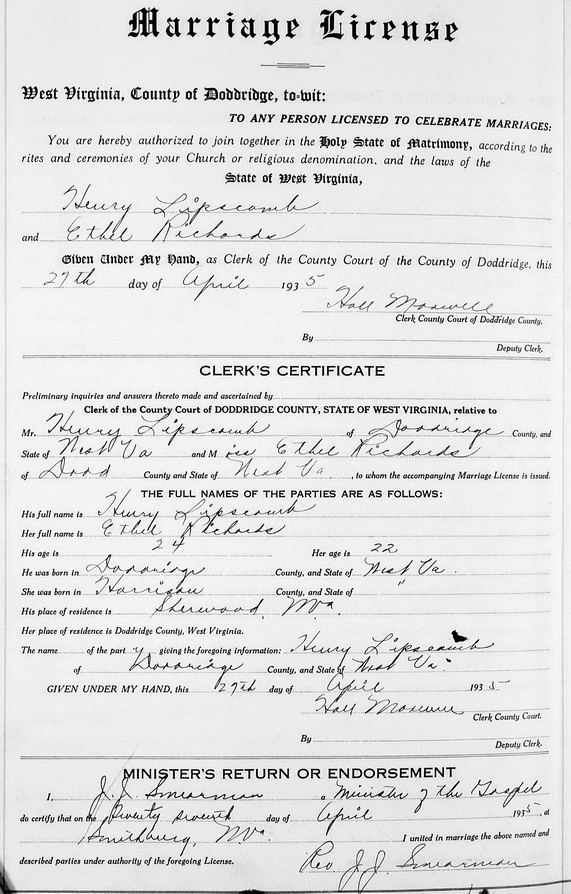 Marriage License
West Virginia, County of Doddridge, to-wit:
TO ANY PERSON LICENSED TO CELEBRATE MARRIAGES:
You are hereby authorized to join together in the Holy State of Matrimony, according to the
rites and ceremonies of your Church or religious denomination, and the laws of the
State of West Virginia,
Henry Lipscomb
and Ethel Richards
Given Under My Hand, as Clerk of the County Court of the County of Doddridge, this
27th day of April 1935
Hall Maxwell
Clerk County Court of Doddridge County.
By
Deputy Clerk.
CLERK'S CERTIFICATE
Preliminary inquiries and answers thereto made and ascertained by
Clerk of the County Court of DODDRIDGE COUNTY, STATE OF WEST VIRGINIA, relative to
Mr. Henry Lipscomb of Doddridge County, and
State of West Va and Miss Ethel Richards
of Dodd County and State of West Va , to whom the accompanying Marriage License is issued.
THE FULL NAMES OF THE PARTIES ARE AS FOLLOWS:
His full name is Henry Lipscomb
Her full name is Ethel Richards
His age is 24 Her age is 22
He was born in Doddridge County, and State of West Va.
She was born in Harrison County, and State of "
His place of residence is Sherwood, Wva.
Her place of residence is Doddridge County, West Virginia.
The name of the party giving the foregoing information: Henry Lipscomb
of Doddridge County, and State of West Va.
GIVEN UNDER MY HAND, this 27th day of April 1935
Hall Maxwell
Clerk County Court.
By
Deputy Clerk.
MINISTER'S RETURN OR ENDORSEMENT
I, J. J. Smearman a Minister of the Gospel
do certify that on the Twenty seventh day of April 1935, at
Smithburg, Wva. I united in marriage the above named and
described parties under authority of the foregoing License.
Rev. J. J. Smearman